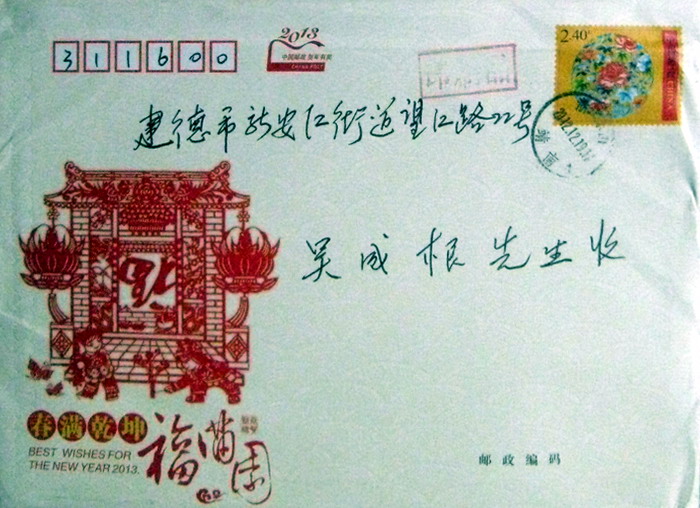 311600
2013
中国邮政 贺年有奖
CHINA POST
2.40
建德市新安江街道望江路22号
吴成根先生收
春满乾坤
福满園
BEST WISHES FOR
THE NEW YEAR 2013.
邮政编码